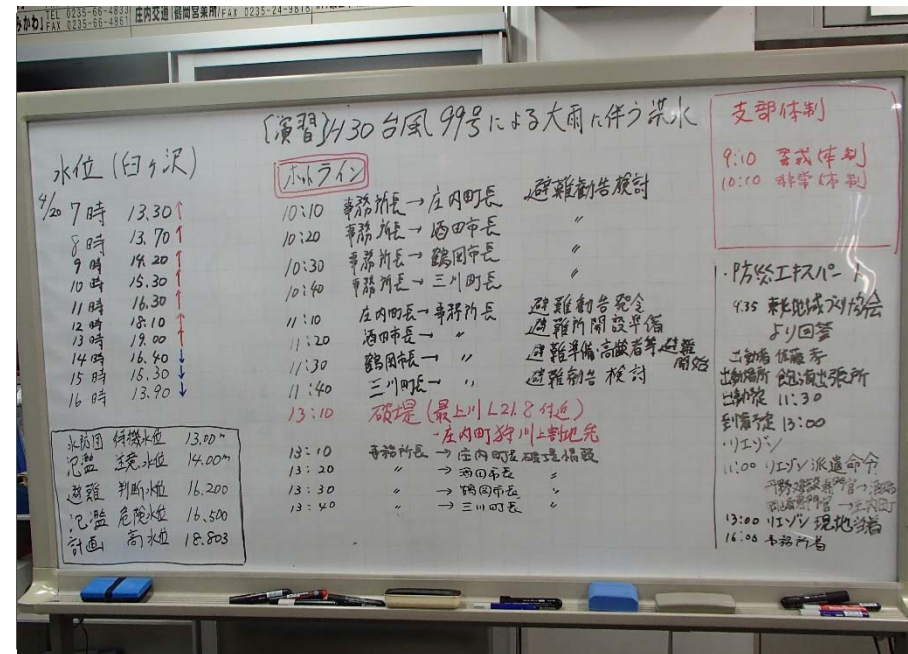 TEL 0235-66-4833
みかわ」FAX 0235-66-4861
庄内交通「鶴岡営業所」FAX 0235-24-9818
〔演習〕H30 台風99号による大雨に伴う洪水
水位 (臼ヶ沢)
4/20 7時 13.30↑
8時 13.70↑
9時 14.20↑
10時 15.30↑
11時 16.30↑
12時 18.10↑
13時 19.00↑
14時 16.40↓
15時 15.30↓
16時 13.90↓
水防団 待機水位 13.00m
氾濫 注意水位 14.00m
避難 判断水位 16.200
氾濫 危険水位 16.500
計画 高水位 18.803
ホットライン
10:10 事務所長→庄内町長 避難勧告検討
10:20 事務所長→酒田市長 〃
10:30 事務所長→鶴岡市長 〃
10:40 事務所長→三川町長 〃
11:10 庄内町長→事務所長 避難勧告発令
11:20 酒田市長→ 〃 避難所開設準備
11:30 鶴岡市長→ 〃 避難準備・高齢者等避難開始
11:40 三川町長→ 〃 避難勧告検討
13:10 破堤 (最上川L21.8付近)
・庄内町狩川上割地先
13:10 事務所長→庄内町長 破堤
13:20 〃 →酒田市長 〃
13:30 〃 →鶴岡市長 〃
13:40 〃 →三川町長 〃
支部体制
9:10 警戒体制
10:10 非常体制
・防災エキスパート
9:35 東北地域づくり協会
より回答
出動者 佐藤
出動場所 飽海出張所
出動予定 11:30
到着予定 13:00
・リエゾン
11:00 リエゾン派遣命令
13:00 リエゾン現地到着
16:00 事務所着